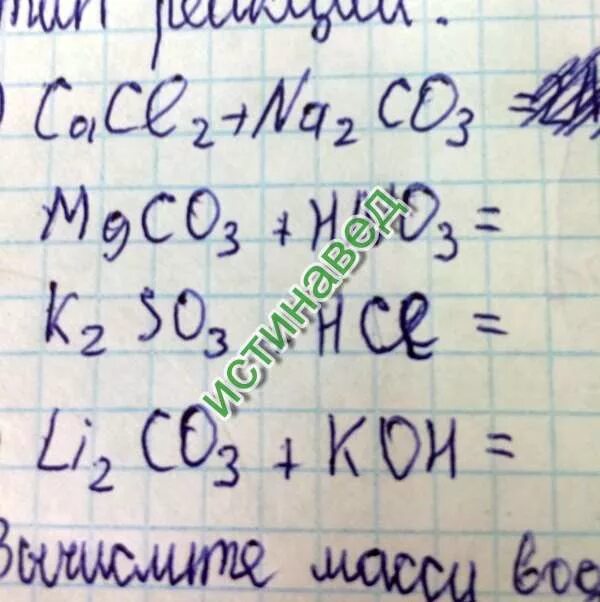 тип реакции.
) CaCl2 + Na2 CO3 =
MgCO3 + HNO3 =
K2 SO3 + HCl =
Li2 CO3 + KOH =
Вычислите массу
ИСТИНАВЕД